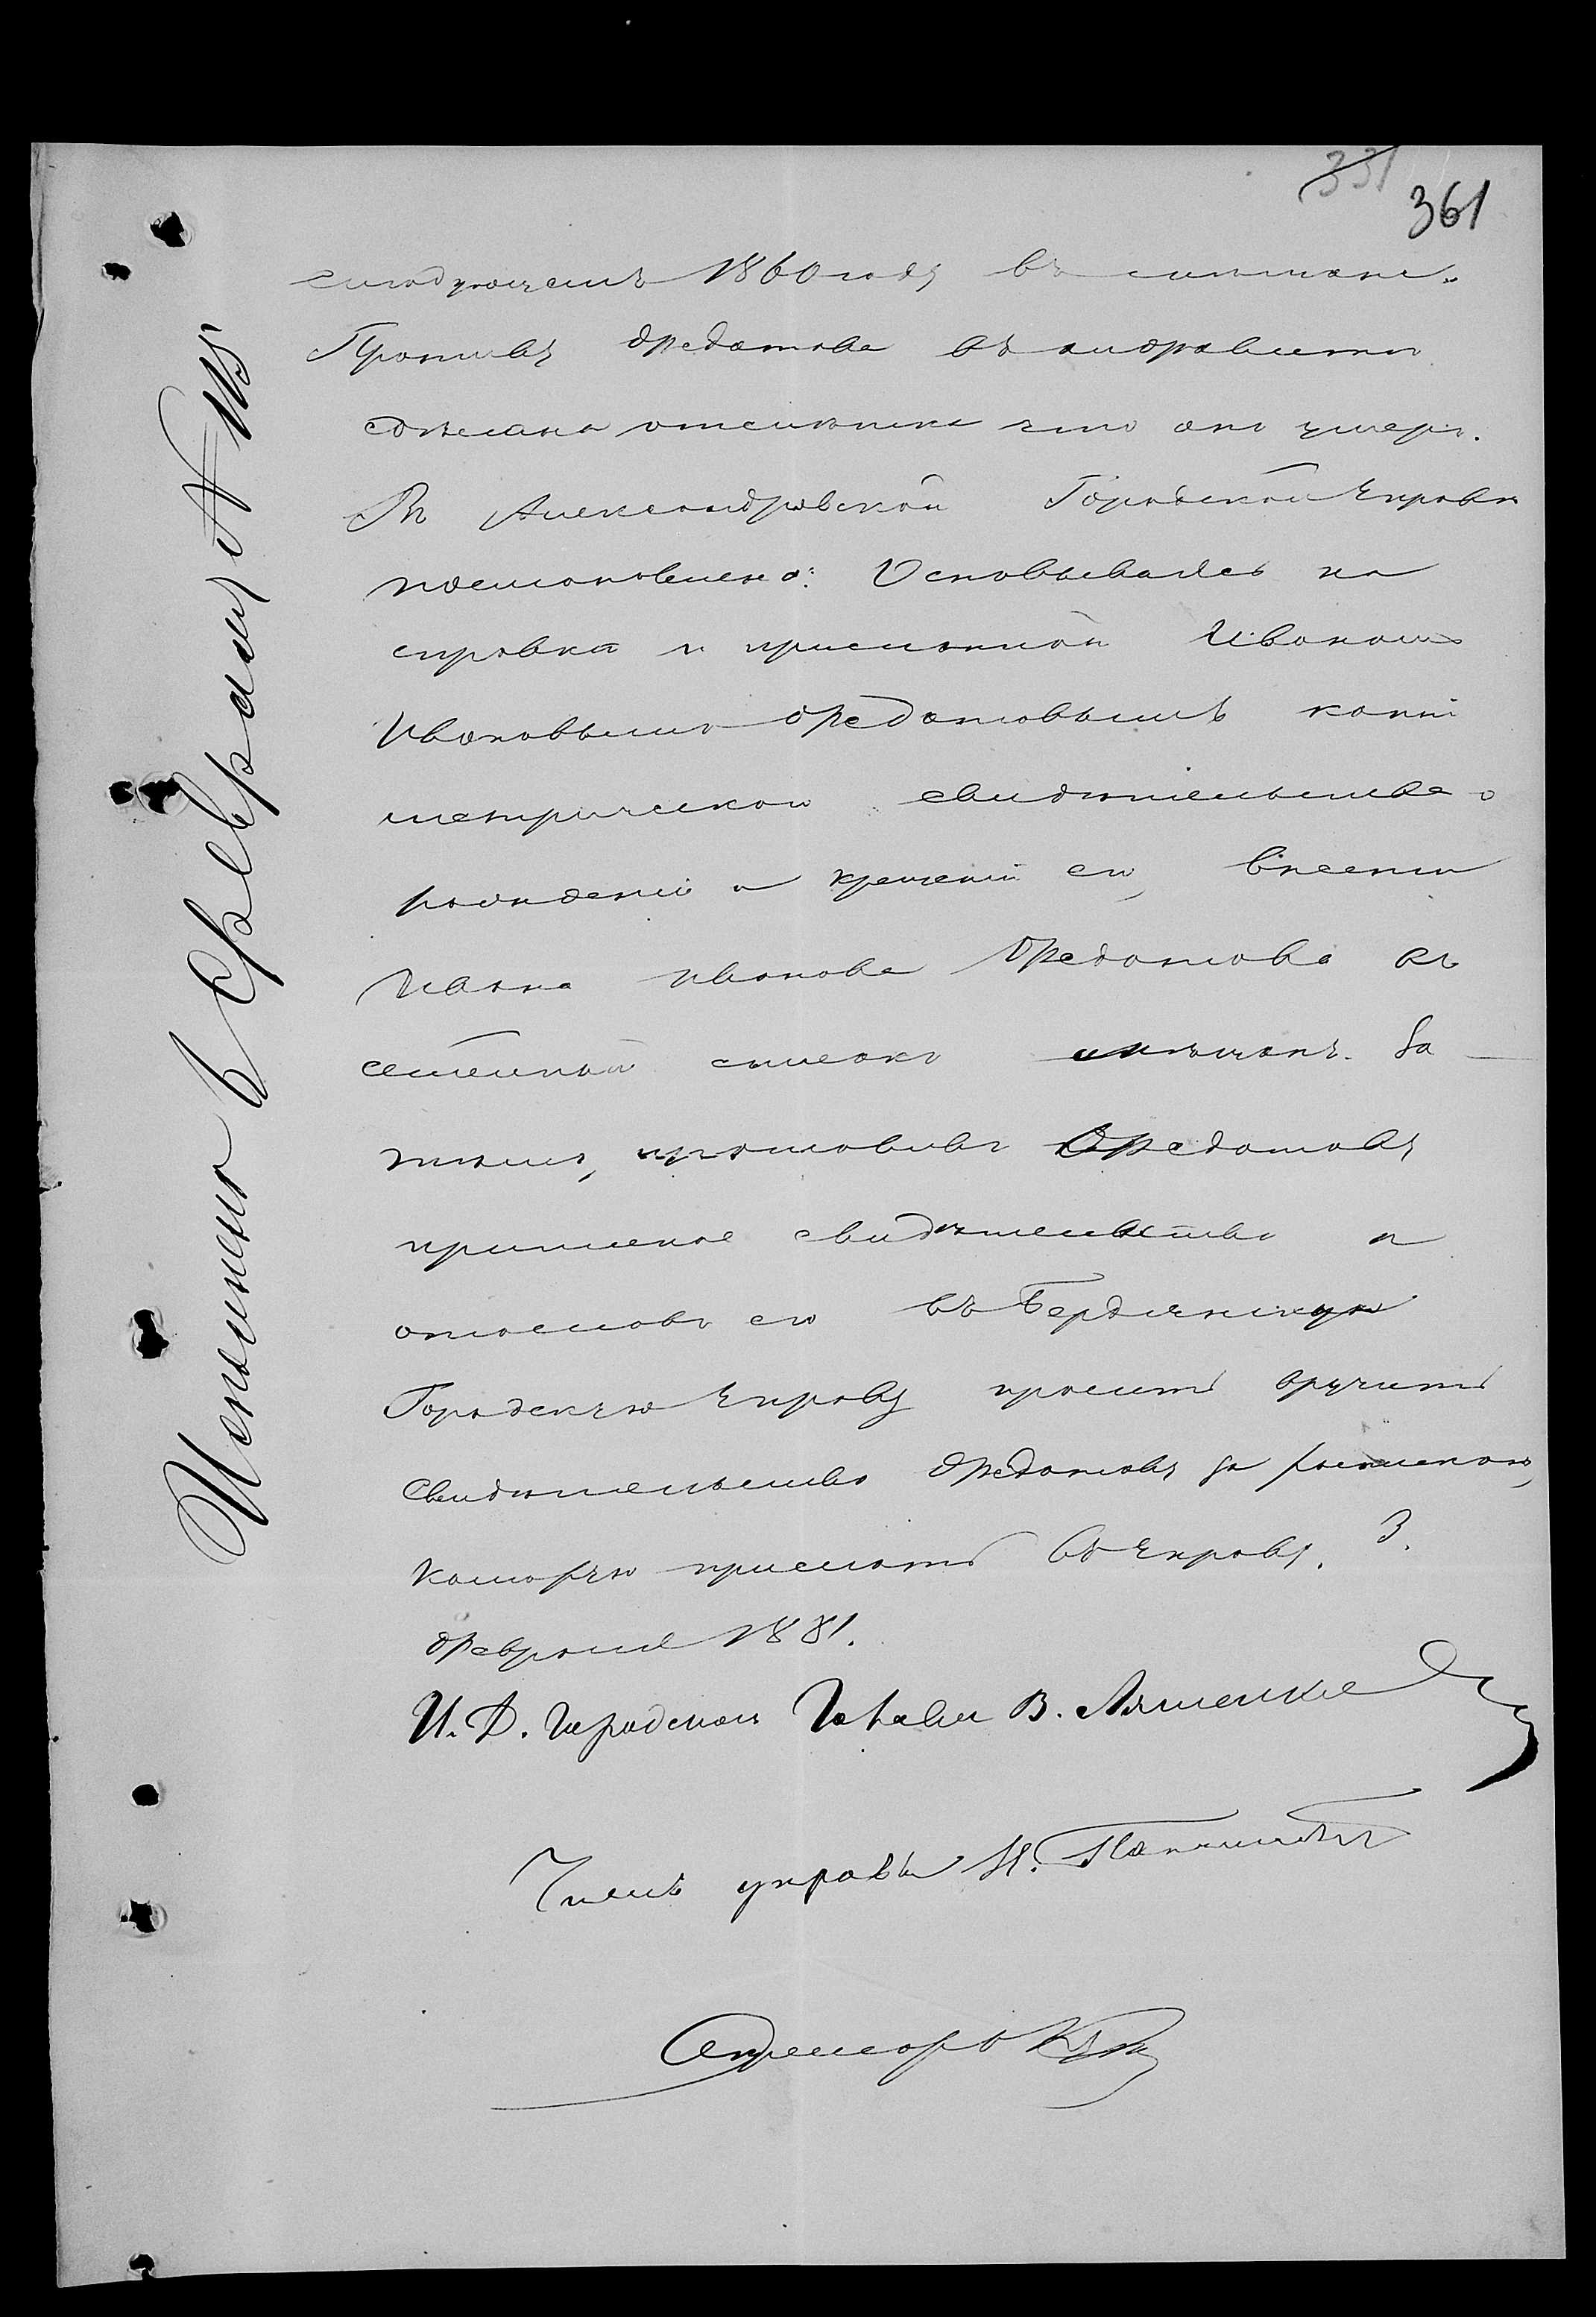 331
361
слѣдующемъ 1860 году въ мѣщане.
Противъ Федотова въ алфавитѣ
сдѣлана отмѣтка что онъ умеръ.
Въ Александровской Городской Управѣ
постановлено: Основываясь на
справкѣ и присланной Иваномъ
Ивановымъ Федотовымъ копіи
метрическаго свидѣтельства о
рожденіи и крещеніи его, внести
Ивана Иванова Федотова въ
семейный списокъ мѣщанъ. За
тѣмъ, изготовивъ Федотову
свидѣтельство и
отославъ его въ Бердянскую
Городскую Управу просить вручить
свидѣтельство Федотову за роспискою,
которую прислать въ Управу. 3.
Февраля 1881.
И. Д. Городскаго Головы В. Ляшенко
Членъ управы Н.
Секретарь
Исполнено 6 Февраля № 115